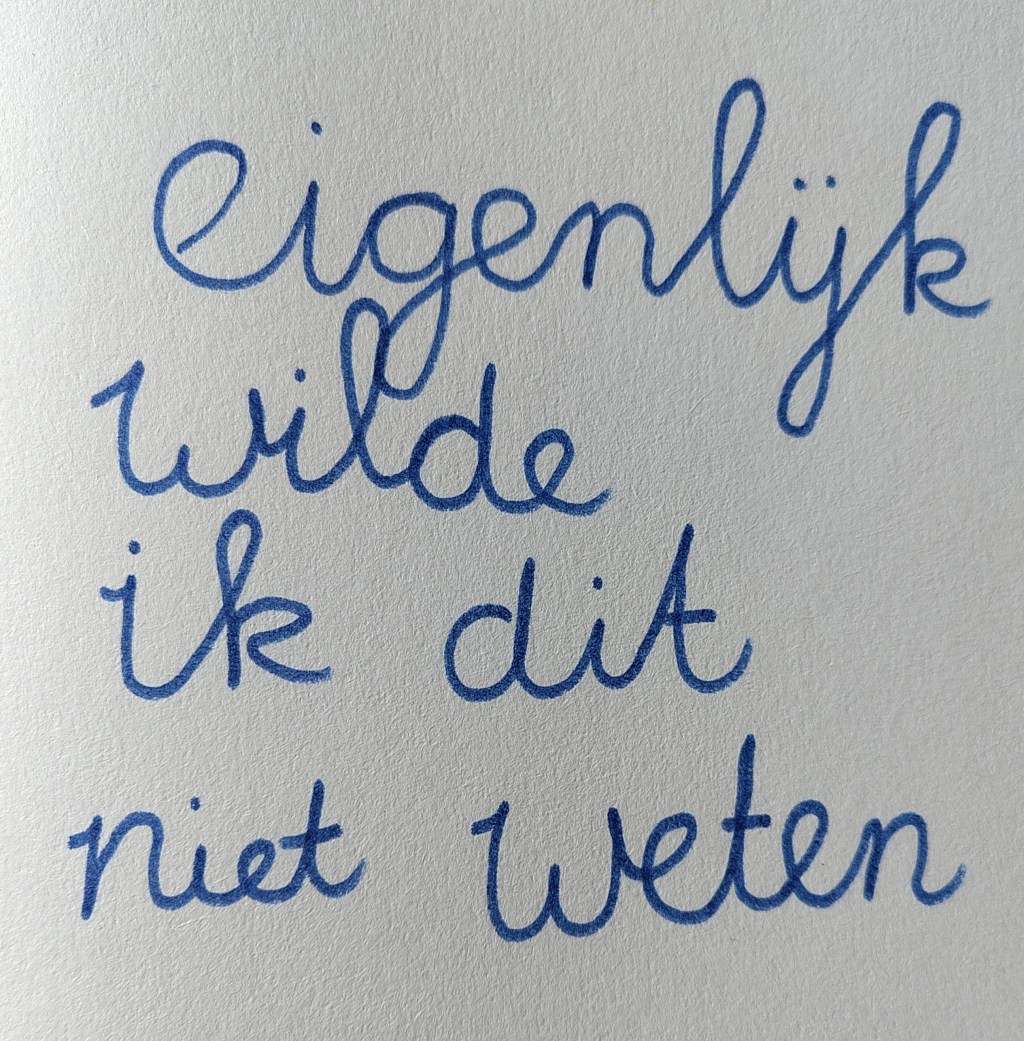 eigenlijk
wilde
ik dit
niet weten